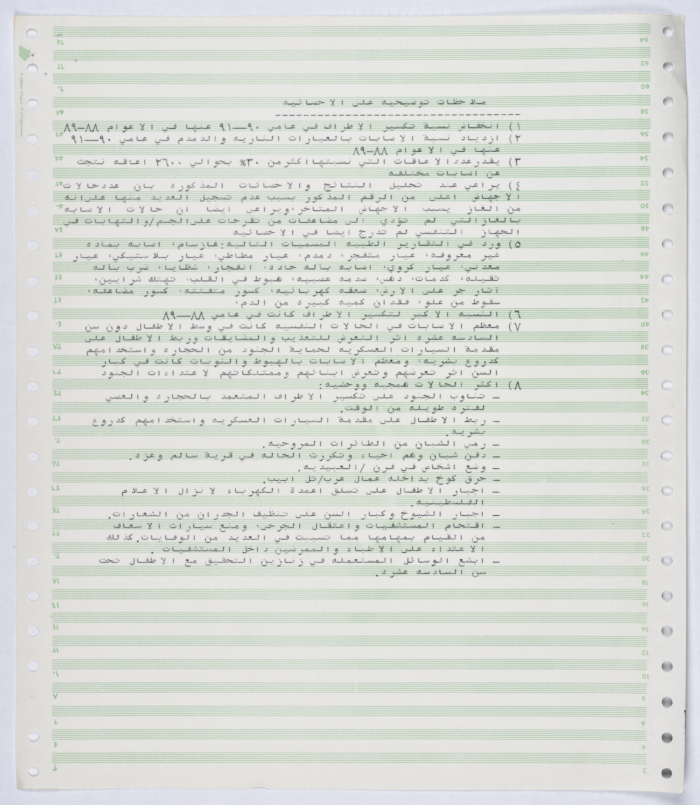 ملاحظات توضيحيه على الاحصائيه
١) انخفاض نسبة تكسير الاطراف في عامي ٩٠—٩١ عنها في الاعوام ٨٨—٨٩
٢) ازدياد نسبة الاصابات بالعيارات الناريه والدمدم في عامي ٩٠—٩١
عنها في الاعوام ٨٨—٨٩
٣) يقدر عدد الاعاقات التي نسبتها اكثر من ٣٠% بحوالي ٢٦٠٠ اعاقه نتجت
عن اصابات مختلفه
٤) يراعي عند تحليل النتائج والاحصائات المذكوره بان عدد حالات
الاجهاض اعلى من الرقم المذكور بسبب عدم تسجيل العديد منها على انه
من الغاز يسبب الاجهاض المتاخر، ويراعى ايضا ان حالات الاصابه
بالغاز التي لم تؤدي الى مضاعفات من تقرحات على الجسم/والتهابات في
الجهاز التنفسي لم تدرج ايضا في الاحصائيه
٥) ورد في التقارير الطبيه المسميات التاليه: غاز سام، اصابه بماده
غير معروفه، عيار متفجر، دمدم، عيار مطاطي، عيار بلاستيكي، عيار
معدني، عيار كروي، اصابه بآله حاده، انفجار، شظايا، ضرب بآله
ثقيله، كدمات، دهس، صدمه عصبيه، هبوط في القلب، تهتك شرايين،
آثار جر على الارض، صعقه كهربائيه، كسور متفتته، كسور مضاعفه،
سقوط من علو، فقدان كميه كبيره من الدم.
٦) النسبه الاكبر لتكسير الاطراف كانت في عامي ٨٨—٨٩
٧) معظم الاصابات في الحالات النفسيه كانت في وسط الاطفال دون سن
السادسه عشره اثر التعرض للتعذيب والمضايقات وربط الاطفال على
مقدمة السيارات العسكريه لحماية الجنود من الحجاره واستخدامهم
كدروع بشريه، ومعظم الاصابات بالهبوط والنوبات كانت في كبار
السن اثر تعرضهم وتعرض ابنائهم وممتلكاتهم لاعتداءات الجنود
٨) اكثر الحالات همجيه ووحشيه:
— تناوب الجنود على تكسير الاطراف المتعمد بالحجاره والعصي
لفتره طويله من الوقت.
— ربط الاطفال على مقدمة السيارات العسكريه واستخدامهم كدروع
بشريه.
— رمي الشبان من الطائرات المروحيه.
— دفن شبان وهم احياء وتكررت الحاله في قرية سالم وغزه.
— وضع اشخاص في فرن /العبيديه.
— حرق كوخ بداخله عمال عرب/تل ابيب.
— اجبار الاطفال على تسلق اعمدة الكهرباء لانزال الاعلام
الفلسطينيه.
— اجبار الشيوخ وكبار السن على تنظيف الجدران من الشعارات.
— اقتحام المستشفيات واعتقال الجرحى، ومنع سيارات الاسعاف
من القيام بمهامها مما تسببت في العديد من الوفايات، كذلك
الاعتداء على الاطباء والممرضين داخل المستشفيات .
— ابشع الوسائل المستعمله في زنازين التحقيق مع الاطفال تحت
سن السادسه عشره.